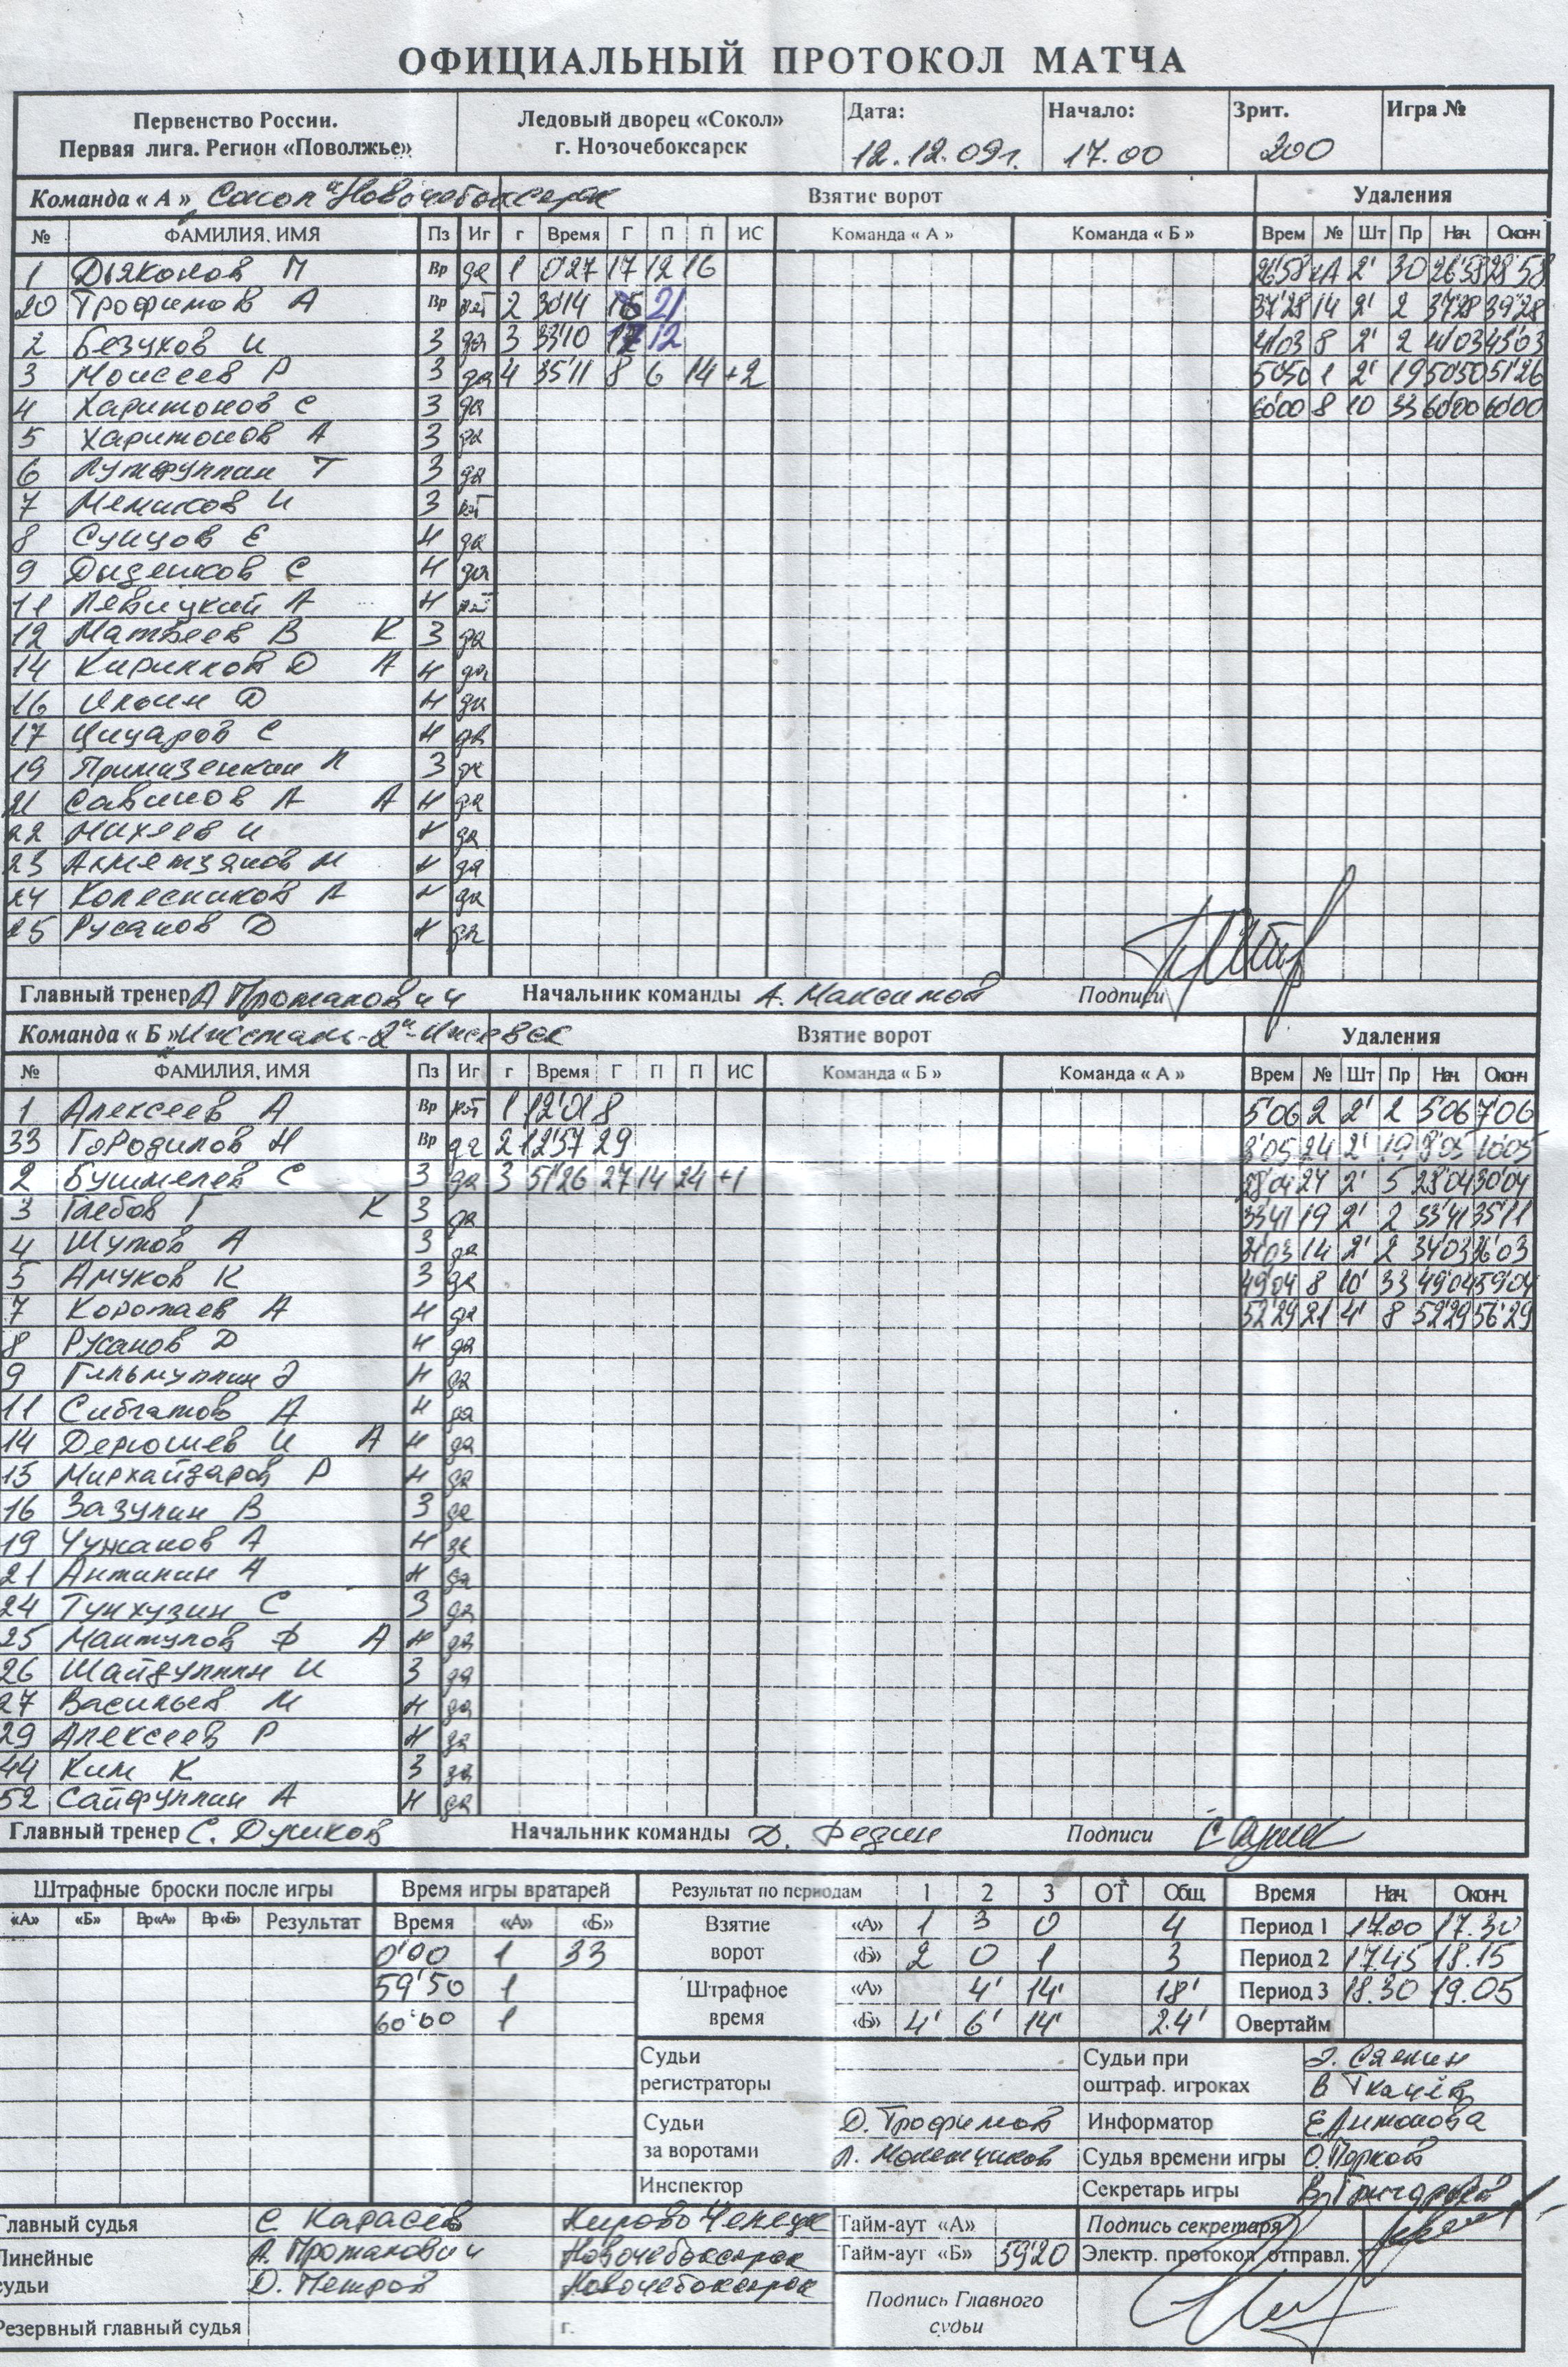 ОФИЦИАЛЬНЫЙ ПРОТОКОЛ МАТЧА
Первенство России. Ледовый дворец «Сокол» Дата: Начало: Зрит. Игра №
Первая лига. Регион «Поволжье» г. Новочебоксарск 12.12.09г. 17.00 200
Команда « А » "Сокол" Новочебоксарск Взятие ворот Удаления
№ ФАМИЛИЯ, ИМЯ Пз Иг г Время Г П П ИС Команда « А » Команда « Б » Врем № Шт Пр Нач. Оконч
1 Дьяконов М Вр да 1 0'27 17 12 16 26'58 кА 2' 30 26'58 28'58
20 Трофимов А Вр нет 2 30'14 16 21 37'28 14 2' 2 37'28 39'28
2 Безухов И З да 3 33'10 17 12 41'03 8 2' 2 41'03 43'03
3 Моисеев Р З да 4 35'11 8 6 14 +2 50'50 1 2' 19 50'50 51'26
4 Харитонов С З да 60'00 8 10 33 60'00 60'00
5 Харитонов А З да
6 Лутфуллин Т З да
7 Меншиков И З нет
8 Сунцов Е Н да
9 Дыденков С Н да
11 Левицкий А Н нет
12 Матвеев В К З да
14 Кириллов Д А Н да
16 Ильин Д Н да
17 Цицаров С Н да
19 З да
21 Савинов А А Н да
22 Михеев И Н да
23 Ахметзянов М Н да
24 Колесников А Н да
25 Русанов Д Н да
Главный тренер А Протапович Начальник команды А. Максимов Подписи
Команда « Б » "Ижсталь-2" Ижевск Взятие ворот Удаления
№ ФАМИЛИЯ, ИМЯ Пз Иг г Время Г П П ИС Команда « Б » Команда « А » Врем № Шт Пр Нач. Оконч
1 Алексеев А Вр нет 1 12'01 8 5'06 2 2' 2 5'06 7'06
33 Городилов Н Вр да 2 12'57 29 8'05 24 2' 19 8'05 10'05
2 Бушмелев С З да 3 51'26 27 14 24 +1 28'04 24 2' 5 28'04 30'04
3 Глебов Г К З да 33'41 19 2' 2 33'41 35'11
4 Шутов А З да 34'03 14 2' 2 34'03 36'03
5 Амуков К З да 49'04 8 10' 33 49'04 59'04
7 Коротаев А Н да 52'29 21 4' 8 52'29 56'29
8 Русанов Д Н да
9 Гильмуллин Э Н да
11 Сибгатов А Н да
14 Дерюшев И А Н да
15 Мирхайдаров Р Н да
16 Зазулин В З да
19 Чужанов А Н да
21 Антипин А Н да
24 Тунхузин С З да
25 Мантулов Ф А Н да
26 Шайдуллин И З да
27 Васильев М Н да
29 Алексеев Р Н да
44 Ким К З да
52 Сайфуллин А Н да
Главный тренер С. Душков Начальник команды Д. Федин Подписи
Штрафные броски после игры Время игры вратарей Результат по периодам 1 2 3 ОТ Общ. Время Нач. Оконч.
«А» «Б» Вр«А» Вр«Б» Результат Время «А» «Б» Взятие ворот «А» 1 3 0 4 Период 1 17.00 17.30
0'00 1 33 «Б» 2 0 1 3 Период 2 17.45 18.15
59'50 1 Штрафное время «А» 4' 14' 18' Период 3 18.30 19.05
60'00 1 «Б» 4' 6' 14' 24' Овертайм
Судьи регистраторы Судьи при оштраф. игроках Э. Саенин
В Ткачёв
Судьи за воротами Д. Трофимов Информатор Е Антонова
Л. Молотчиков Судья времени игры О. Порков
Инспектор Секретарь игры В. Гончарова
Главный судья С Карасев Кирово Чепецк Тайм-аут «А» Подпись секретаря
Линейные судьи А. Протапович Новочебоксарск Тайм-аут «Б» 59'20 Электр. протокол отправл.
Д. Петров Новочебоксарск Подпись Главного судьи
Резервный главный судья г.